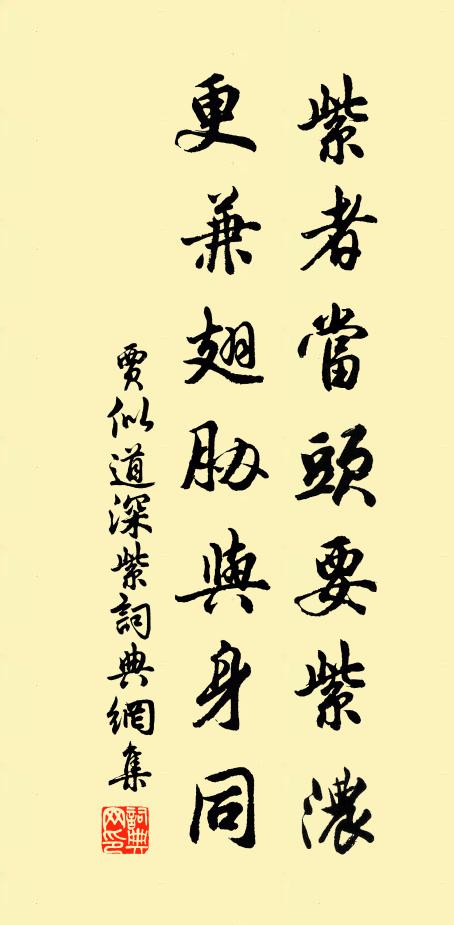 紫者當頭要紫濃
更兼翅肋與身同
賈似道深紫詞典網集
詞典網印